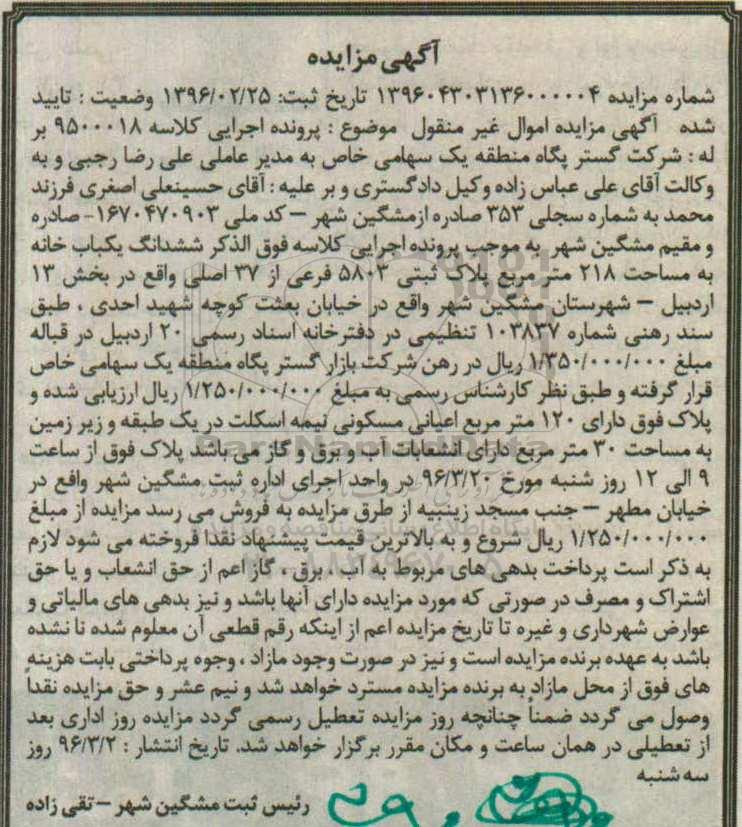 آگهی مزایده
شماره مزایده ۱۳۹۶۰۴۳۰۳۱۳۶۰۰۰۰۰۴ تاریخ ثبت: ۱۳۹۶/۰۲/۲۵ وضعیت : تایید
شده آگهی مزایده اموال غیر منقول موضوع : پرونده اجرایی کلاسه ۹۵۰۰۰۱۸ بر
له : شرکت گستر پگاه منطقه یک سهامی خاص به مدیر عاملی علی رضا رجبی و به
وکالت آقای علی عباس زاده وکیل دادگستری و بر علیه : آقای حسینعلی اصغری فرزند
محمد به شماره سجلی ۳۵۳ صادره ازمشگین شهر – کد ملی ۱۶۷۰۴۷۰۹۰۳- صادره
و مقیم مشگین شهر به موجب پرونده اجرایی کلاسه فوق الذکر ششدانگ یکباب خانه
به مساحت ۲۱۸ متر مربع پلاک ثبتی ۵۸۰۳ فرعی از ۳۷ اصلی واقع در بخش ۱۳
اردبیل – شهرستان مشگین شهر واقع در خیابان بعثت کوچه شهید احدی ، طبق
سند رهنی شماره ۱۰۳۸۳۷ تنظیمی در دفترخانه اسناد رسمی ۲۰ اردبیل در قباله
مبلغ ۱/۳۵۰/۰۰۰/۰۰۰ ریال در رهن شرکت بازار گستر پگاه منطقه یک سهامی خاص
قرار گرفته و طبق نظر کارشناس رسمی به مبلغ ۱/۲۵۰/۰۰۰/۰۰۰ ریال ارزیابی شده و
پلاک فوق دارای ۱۲۰ متر مربع اعیانی مسکونی نیمه اسکلت در یک طبقه و زیر زمین
به مساحت ۳۰ متر مربع دارای انشعابات آب و برق و گاز می باشد پلاک فوق از ساعت
۹ الی ۱۲ روز شنبه مورخ ۹۶/۳/۲۰ در واحد اجرای اداره ثبت مشگین شهر واقع در
خیابان مطهر – جنب مسجد زینبیه از طرق مزایده به فروش می رسد مزایده از مبلغ
۱/۲۵۰/۰۰۰/۰۰۰ ریال شروع و به بالاترین قیمت پیشنهاد نقدا فروخته می شود لازم
به ذکر است پرداخت بدهی های مربوط به آب، برق ، گاز اعم از حق انشعاب و یا حق
اشتراک و مصرف در صورتی که مورد مزایده دارای آنها باشد و نیز بدهی های مالیاتی و
عوارض شهرداری و غیره تا تاریخ مزایده اعم از اینکه رقم قطعی آن معلوم شده تا نشده
باشد به عهده برنده مزایده است و نیز در صورت وجود مازاد ، وجوه پرداختی بابت هزینه
های فوق از محل مازاد به برنده مزایده مسترد خواهد شد و نیم عشر و حق مزایده نقداً
وصول می گردد ضمناً چنانچه روز مزایده تعطیل رسمی گردد مزایده روز اداری بعد
از تعطیلی در همان ساعت و مکان مقرر برگزار خواهد شد. تاریخ انتشار : ۹۶/۳/۲ روز
سه شنبه
رئیس ثبت مشگین شهر – تقی زاده